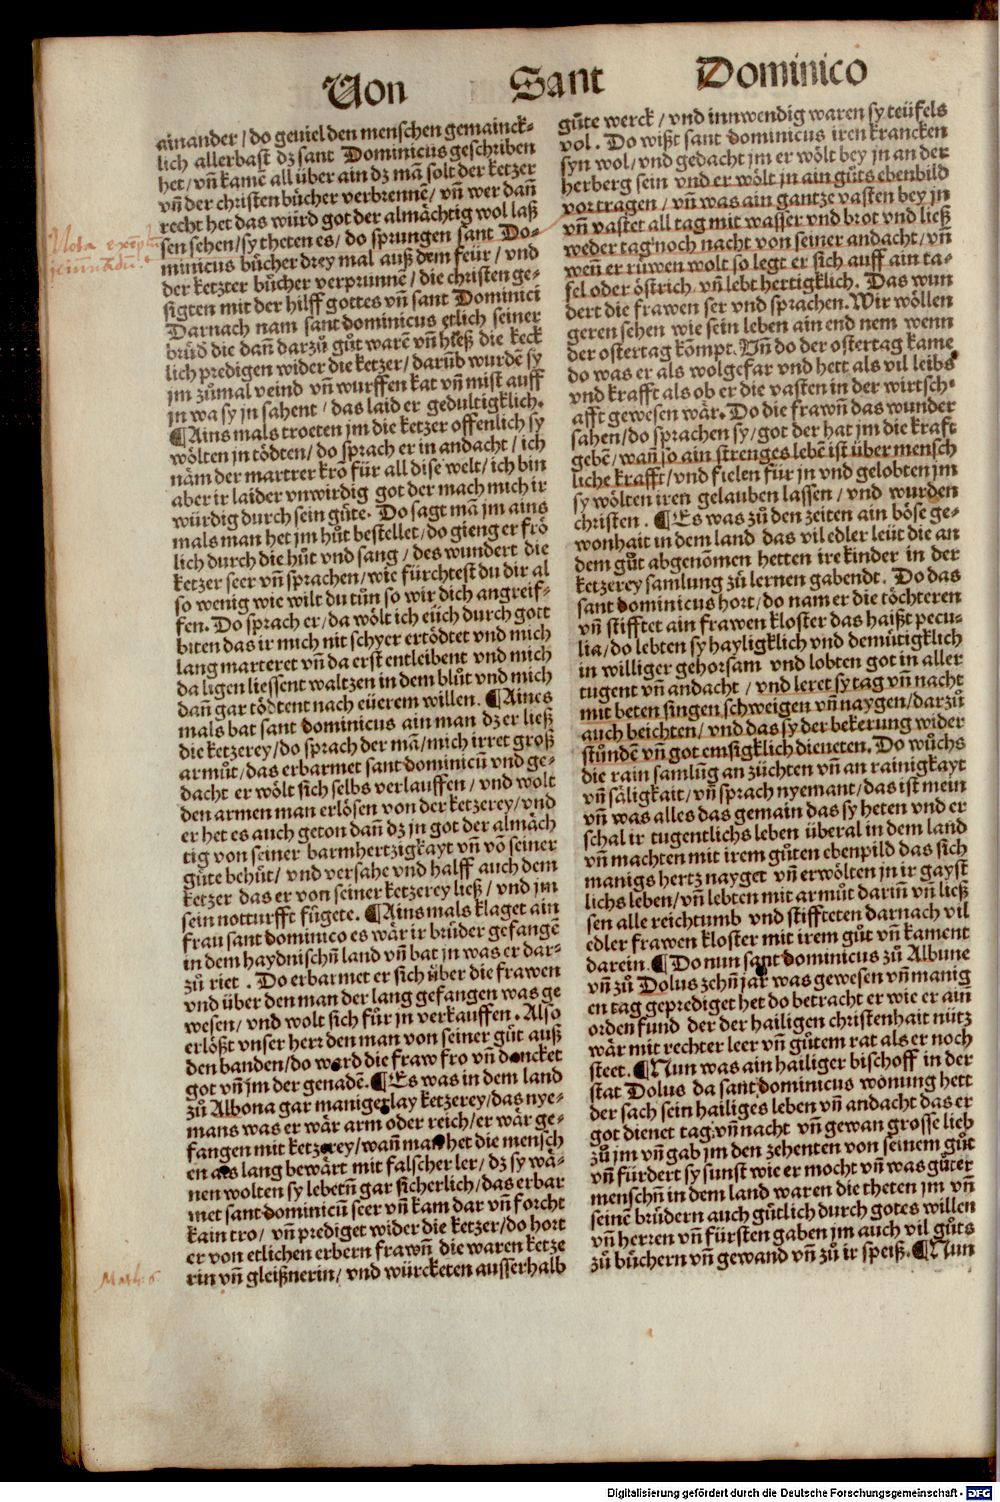 Von Sant Dominico
ainander / do geuiel den menschen gemainck⸗
lich allerbast dz sant Dominicus geschriben
het / vñ kamẽ all über ain dz mã solt der ketzer
vñ der christen bücher verbrennẽ / vñ wer dañ
recht het das würd got der almächtig wol laß
sen sehen / sy theten es / do sprungen sant Do⸗
minicus bücher drey mal auß dem feür / vnd
der ketzter bücher verprunnẽ / die christen ge⸗
sigten mit der hilff gottes vñ sant Dominici
Darnach nam sant dominicus etlich seiner
brůd die dañ darzů gůt warẽ vñ hieß die keck
lich predigen wider die ketzer / darũb wurdẽ sy
jm zůmal veind vñ wurffen kat vñ mist auff
jn wa sy jn sahent / das laid er gedultigklich.
¶Ains mals troeten jm die ketzer offenlich sy
wölten jn tödten / do sprach er in andacht / ich
näm der martrer krõ für all dise welt / ich bin
aber ir laider vnwirdig got der mach mich ir
würdig durch sein güte. Do sagt mã jm ains
mals man het jm hůt bestellet / do gieng er frö
lich durch die hůt vnd sang / des wundert die
ketzer seer vñ sprachen / wie fürchtest du dir al
so wenig wie wilt du tůn so wir dich angreif⸗
fen. Do sprach er / da wölt ich eüch durch gott
biten das ir mich nit schyer ertödtet vnd mich
lang marteret vñ da erst entleibent vnd mich
da ligen liessent waltzen in dem blůt vnd mich
dañ gar tödtent nach eüerem willen. ¶Aines
mals bat sant dominicus ain man dz er ließ
die ketzerey / do sprach der mã / mich irret groß
armůt / das erbarmet sant dominicũ vnd ge⸗
dacht er wölt sich selbs verlauffen / vnd wolt
den armen man erlösen von der ketzerey / vnd
er het es auch geton dañ dz jn got der almäch
tig von seiner barmhertzigkayt vñ võ seiner
güte behůt / vnd versahe vnd halff auch dem
ketzer das er von seiner ketzerey ließ / vnd jm
sein notturfft fůgete. ¶Ains mals klaget ain
frau sant dominico es wär ir brůder gefangẽ
in dem haydnischñ land vñ bat jn was er dar⸗
zů riet . Do erbarmet er sich über die frawen
vnd über den man der lang gefangen was ge
wesen / vnd wolt sich für jn verkauffen. Also
erlößt vnser herr den man von seiner gůt auß
den banden / do ward die fraw fro vñ dancket
got vñ jm der genadẽ. ¶Es was in dem land
zů Albona gar manigerlay ketzerey / das nye⸗
mans was er wär arm oder reich / er wär ge⸗
fangen mit ketzerey / wañ man het die mensch
en als lang bewärt mit falscher ler / dz sy wä⸗
nen wolten sy lebetñ gar sicherlich / das erbar
met sant dominicũ seer vñ kam dar vñ forcht
kain tro / vñ prediget wider die ketzer / do hort
er von etlichen erbern frawñ die waren ketze
rin vñ gleißnerin / vnd würcketen ausserhalb
gůte werck / vnd innwendig waren sy teüfels
vol . Do wißt sant dominicus iren krancken
syn wol / vnd gedacht jm er wölt bey jn an der
herberg sein vnd er wölt jn ain gůts ebenbild
vor tragen / vñ was ain gantze vasten bey jn
vñ vastet all tag mit wasser vnd brot vnd ließ
weder tag noch nacht von seiner andacht / vñ
weñ er růwen wolt so legt er sich auff ain ta⸗
fel oder östrich vñ lebt hertigklich. Das wun
dert die frawen ser vnd sprachen. Wir wöllen
geren sehen wie sein leben ain end nem wenn
der ostertag kõmpt. Vñ do der ostertag kame
do was er als wolgefar vnd hett als vil leibs
vnd krafft als ob er die vasten in der wirtsch⸗
afft gewesen wär. Do die frawñ das wunder
sahen / do sprachen sy / got der hat jm die kraft
gebẽ / wañ so ain strenges lebẽ ist über mensch
liche krafft / vnd fielen für jn vnd gelobten jm
sy wölten iren gelauben lassen / vnd wurden
christen . ¶Es was zů den zeiten ain böse ge⸗
wonhait in dem land das vil edler leüt die an
dem gůt abgenõmen hetten ire kinder in der
ketzerey samlung zů lernen gabendt . Do das
sant dominicus hort / do nam er die töchteren
vñ stifftet ain frawen kloster das haißt pecu⸗
lia / do lebten sy hayligklich vnd demütigklich
in williger gehorsam vnd lobten got in aller
tugent vñ andacht / vnd leret sy tag vñ nacht
mit beten singen schweigen vñ naygen / darzů
auch beichten / vnd das sy der bekerung wider
stůndẽ vñ got emsigklich dieneten. Do wůchs
die rain samlũg an züchten vñ an rainigkayt
vñ säligkait / vñ sprach nyemant / das ist mein
vñ was alles das gemain das sy heten vnd er
schal ir tugentlichs leben überal in dem land
vñ machten mit irem gůten ebenpild das sich
manigs hertz nayget vñ erwölten jn ir gayst
lichs leben / vñ lebten mit armůt dariñ vñ ließ
sen alle reichtumb vnd stiffteten darnach vil
edler frawen kloster mit irem gůt vñ kament
darein. ¶Do nun sant dominicus zů Albune
vñ zů Dolus zehñ jar was gewesen vñ manig
en tag geprediget het do betracht er wie er ain
orden fund der der hailigen christenhait nütz
wär mit rechter leer vñ gůtem rat als er noch
steet. ¶Nun was ain hailiger bischoff in der
stat Dolus da sant dominicus wonung hett
der sach sein hailiges leben vñ andacht das er
got dienet tag vñ nacht vñ gewan grosse lieb
zů jm vñ gab jm den zehenten von seinem gůt
vñ fürdert sy sunst wie er mocht vñ was gůter
menschñ in dem land waren die theten jm vñ
seinẽ brüdern auch gůtlich durch gotes willen
vñ herren vñ fürsten gaben jm auch vil gůts
zů büchern vñ gewand vñ zů ir speiß. ¶Nun
Math: 6
Digitalisierung gefördert durch die Deutsche Forschungsgemeinschaft - DFG